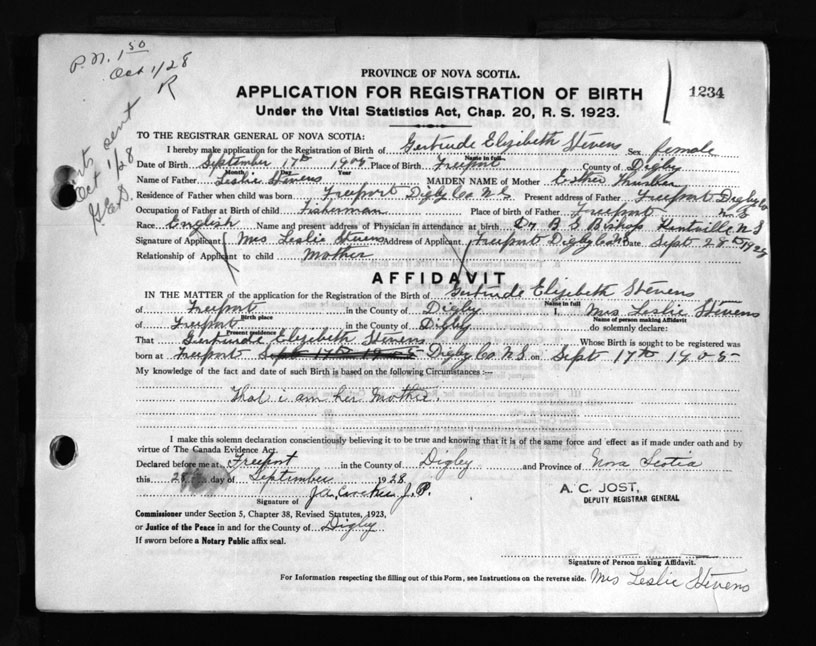 P.N. 1 50
Oct 1/28
R
sent
Oct 1/28
PROVINCE OF NOVA SCOTIA.
APPLICATION FOR REGISTRATION OF BIRTH
1234
Under the Vital Statistics Act, Chap. 20, R. S. 1923.
TO THE REGISTRAR GENERAL OF NOVA SCOTIA:
I hereby make application for the Registration of Birth of Gertrude Elizabeth Stevens Sex female
Name in full
Date of Birth September 17th 1905 Place of Birth Freeport County of Digby
Month Day Year
Name of Father Leslie Stevens MAIDEN NAME of Mother Esther Thurber
Residence of Father when child was born Freeport Digby Co N S Present address of Father Freeport Digby Co
Occupation of Father at Birth of child Fisherman Place of birth of Father Freeport N S
Race English Name and present address of Physician in attendance at birth Dr B S Bishop Kentville N S
Signature of Applicant Mrs Leslie Stevens Address of Applicant Freeport Digby Co N S Date Sept 28th 1928
Relationship of Applicant to child Mother
AFFIDAVIT
IN THE MATTER of the application for the Registration of the Birth of Gertrude Elizabeth Stevens
Name in full
of Freeport in the County of Digby I, Mrs Leslie Stevens
Birth place Name of person making Affidavit
of Freeport in the County of Digby do solemnly declare:
Present residence
That Gertrude Elizabeth Stevens Whose Birth is sought to be registered was
born at Freeport Sept 17th 1905 Digby Co. N S on Sept 17th 1905
My knowledge of the fact and date of such Birth is based on the following Circumstances :—
That i am her Mother.
I make this solemn declaration conscientiously believing it to be true and knowing that it is of the same force and effect as if made under oath and by
virtue of The Canada Evidence Act.
Declared before me at Freeport in the County of Digby and Province of Nova Scotia
this day of September 1928
A. C. JOST,
DEPUTY REGISTRAR GENERAL
Signature of J.P.
Commissioner under Section 5, Chapter 38, Revised Statutes, 1923,
or Justice of the Peace in and for the County of Digby
If sworn before a Notary Public affix seal.
Signature of Person making Affidavit.
For Information respecting the filling out of this Form, see Instructions on the reverse side. Mrs Leslie Stevens